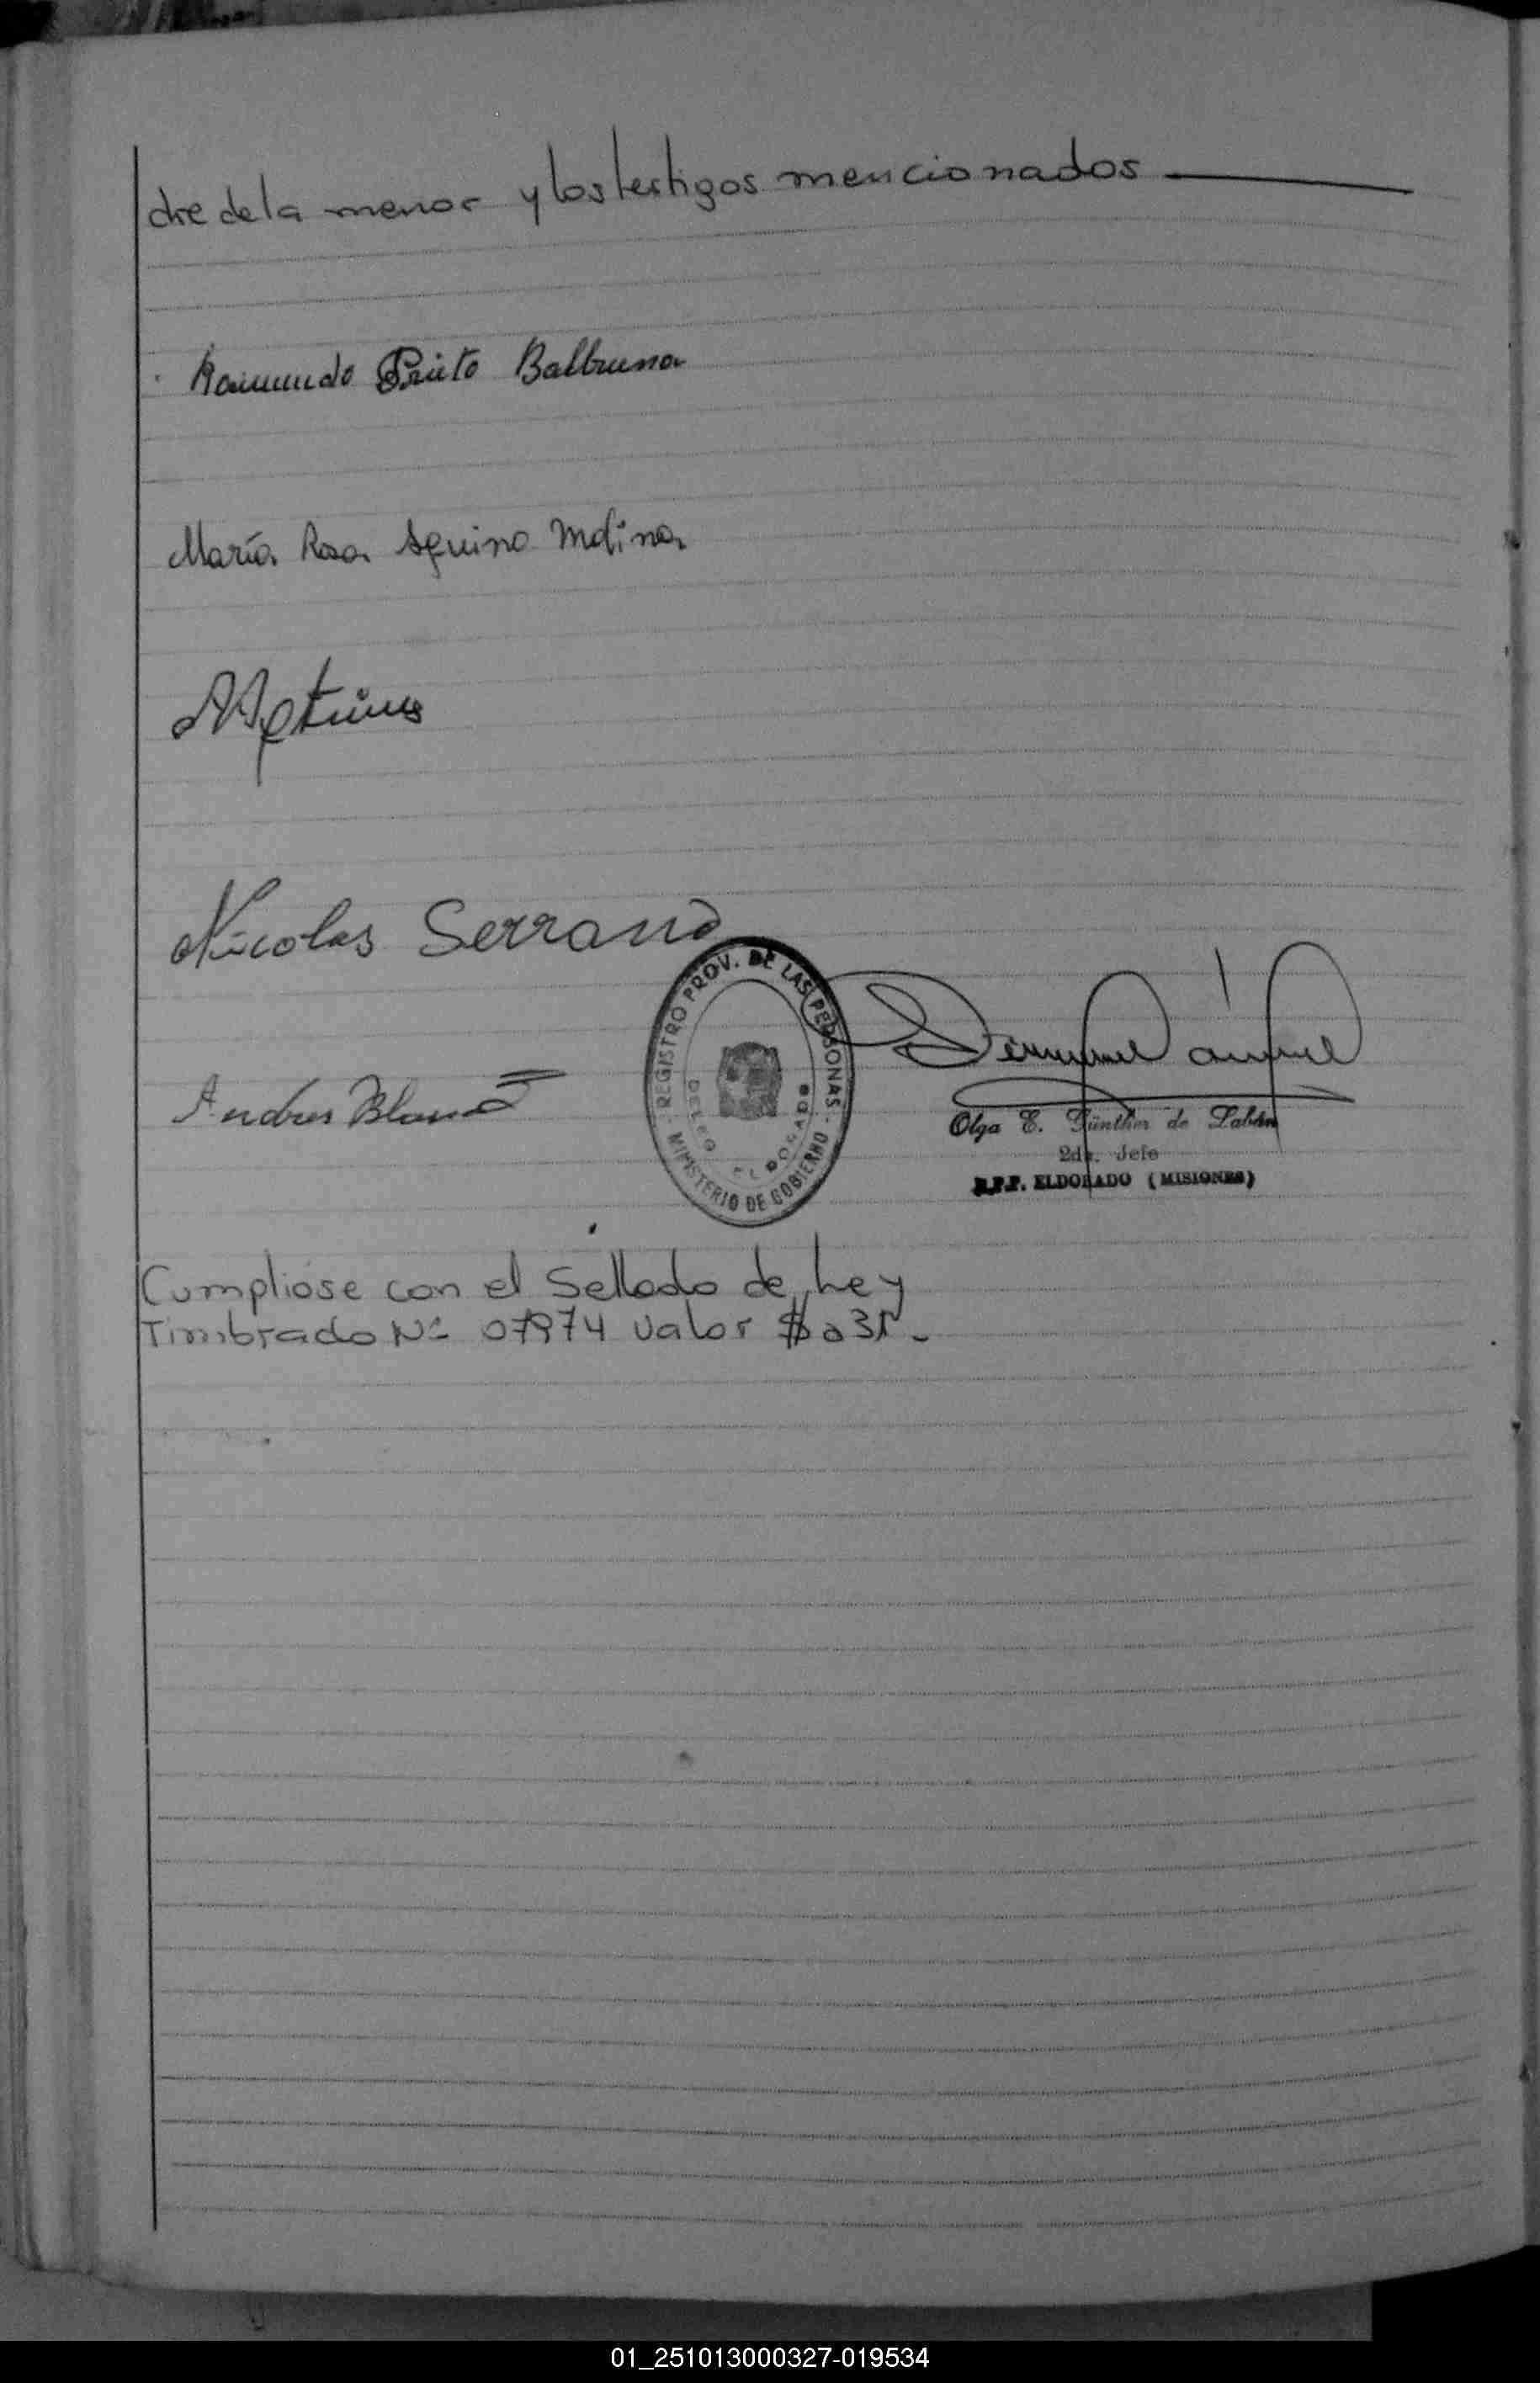 dre de la menor y los testigos mencionados
Raimundo Prieto Balbuena
María Rosa Aquino Molina
Nicolas Serrano
Andres Blanco
REGISTRO PROV. DE LAS PERSONAS
DELEG. ELDORADO
MINISTERIO DE GOBIERNO
Olga E. Günther de Labán
2da. Jefe
R.P.P. ELDORADO (MISIONES)
Cumpliose con el Sellado de Ley
Timbrado Nº 07974 valor $a
01_251013000327-019534